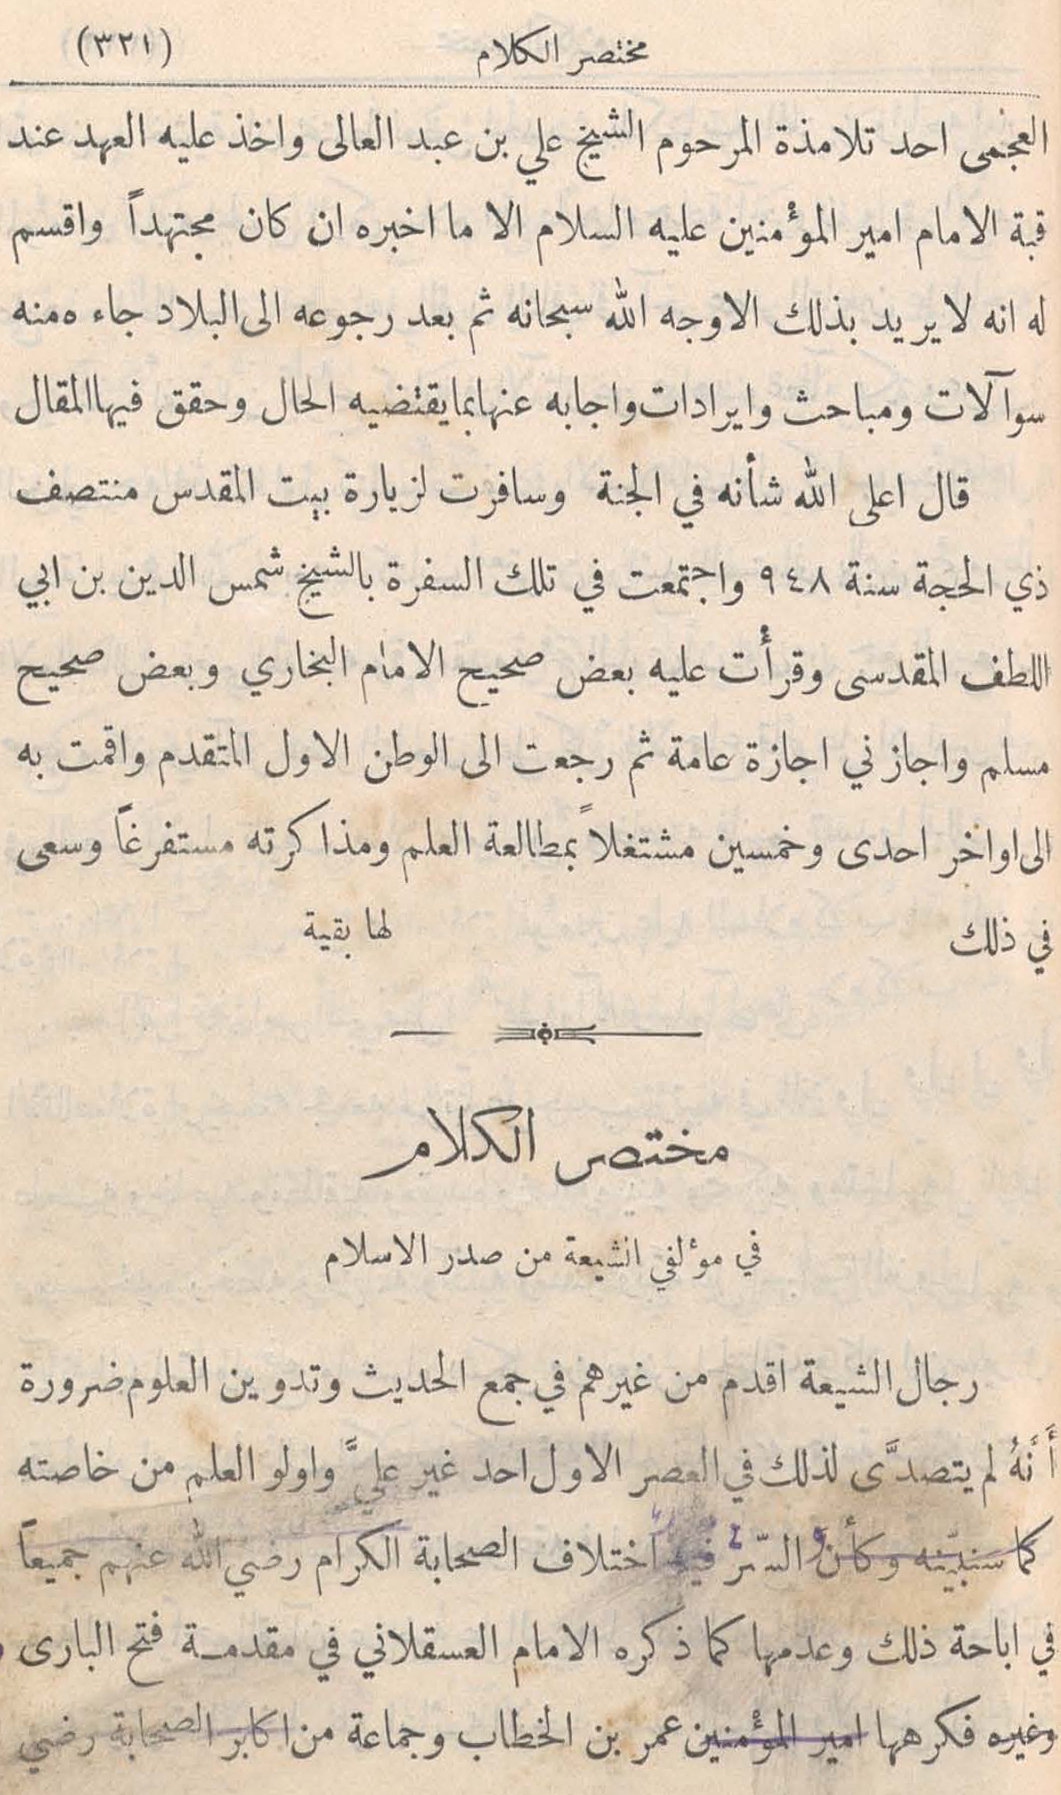 مختصر الكلام (٣٢١)
العجمى احد تلامذة المرحوم الشيخ علي بن عبد العالى واخذ عليه العهد عند
قبة الامام امير المؤمنين عليه السلام الا ما اخبره ان كان مجتهداً واقسم
له انه لا يريد بذلك الاوجه الله سبحانه ثم بعد رجوعه الى البلاد جاء ه منه
سوآلات ومباحث وايرادات واجابه عنها بما يقتضيه الحال وحقق فيها المقال
قال اعلى الله شأنه في الجنة وسافرت لزيارة بيت المقدس منتصف
ذي الحجة سنة ٩٤٨ واجتمعت في تلك السفرة بالشيخ شمس الدين بن ابي
اللطف المقدسى وقرأت عليه بعض صحيح الامام البخاري وبعض صحيح
مسلم واجازني اجازة عامة ثم رجعت الى الوطن الاول المتقدم واقمت به
الى اواخر احدى وخمسين مشتغلاً بمطالعة العلم ومذاكرته مستفرغاً وسعى
في ذلك لها بقية
مختصر الكلام
في مؤلفي الشيعة من صدر الاسلام
رجال الشيعة اقدم من غيرهم في جمع الحديث وتدوين العلوم ضرورة
أَنَّهُ لم يتصدَّى لذلك في العصر الاول احد غير عليَّ واولو العلم من خاصته
كما سنبيّنه وكأنَّ السّر فيه اختلاف الصحابة الكرام رضي الله عنهم جميعاً
في اباحة ذلك وعدمها كما ذكره الامام العسقلاني في مقدمـة فتح البارى
وغيره فكرهها امير المؤمنين عمر بن الخطاب وجماعة من اكابر الصحابة رضي